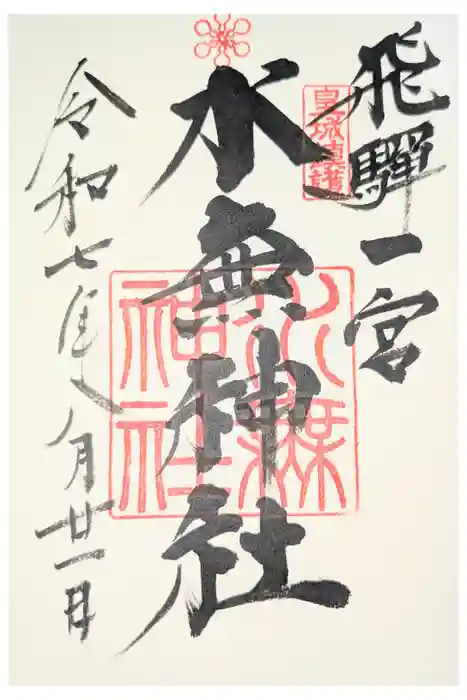 飛騨一宮
水無神社
令和七年八月廿一日
水無神社